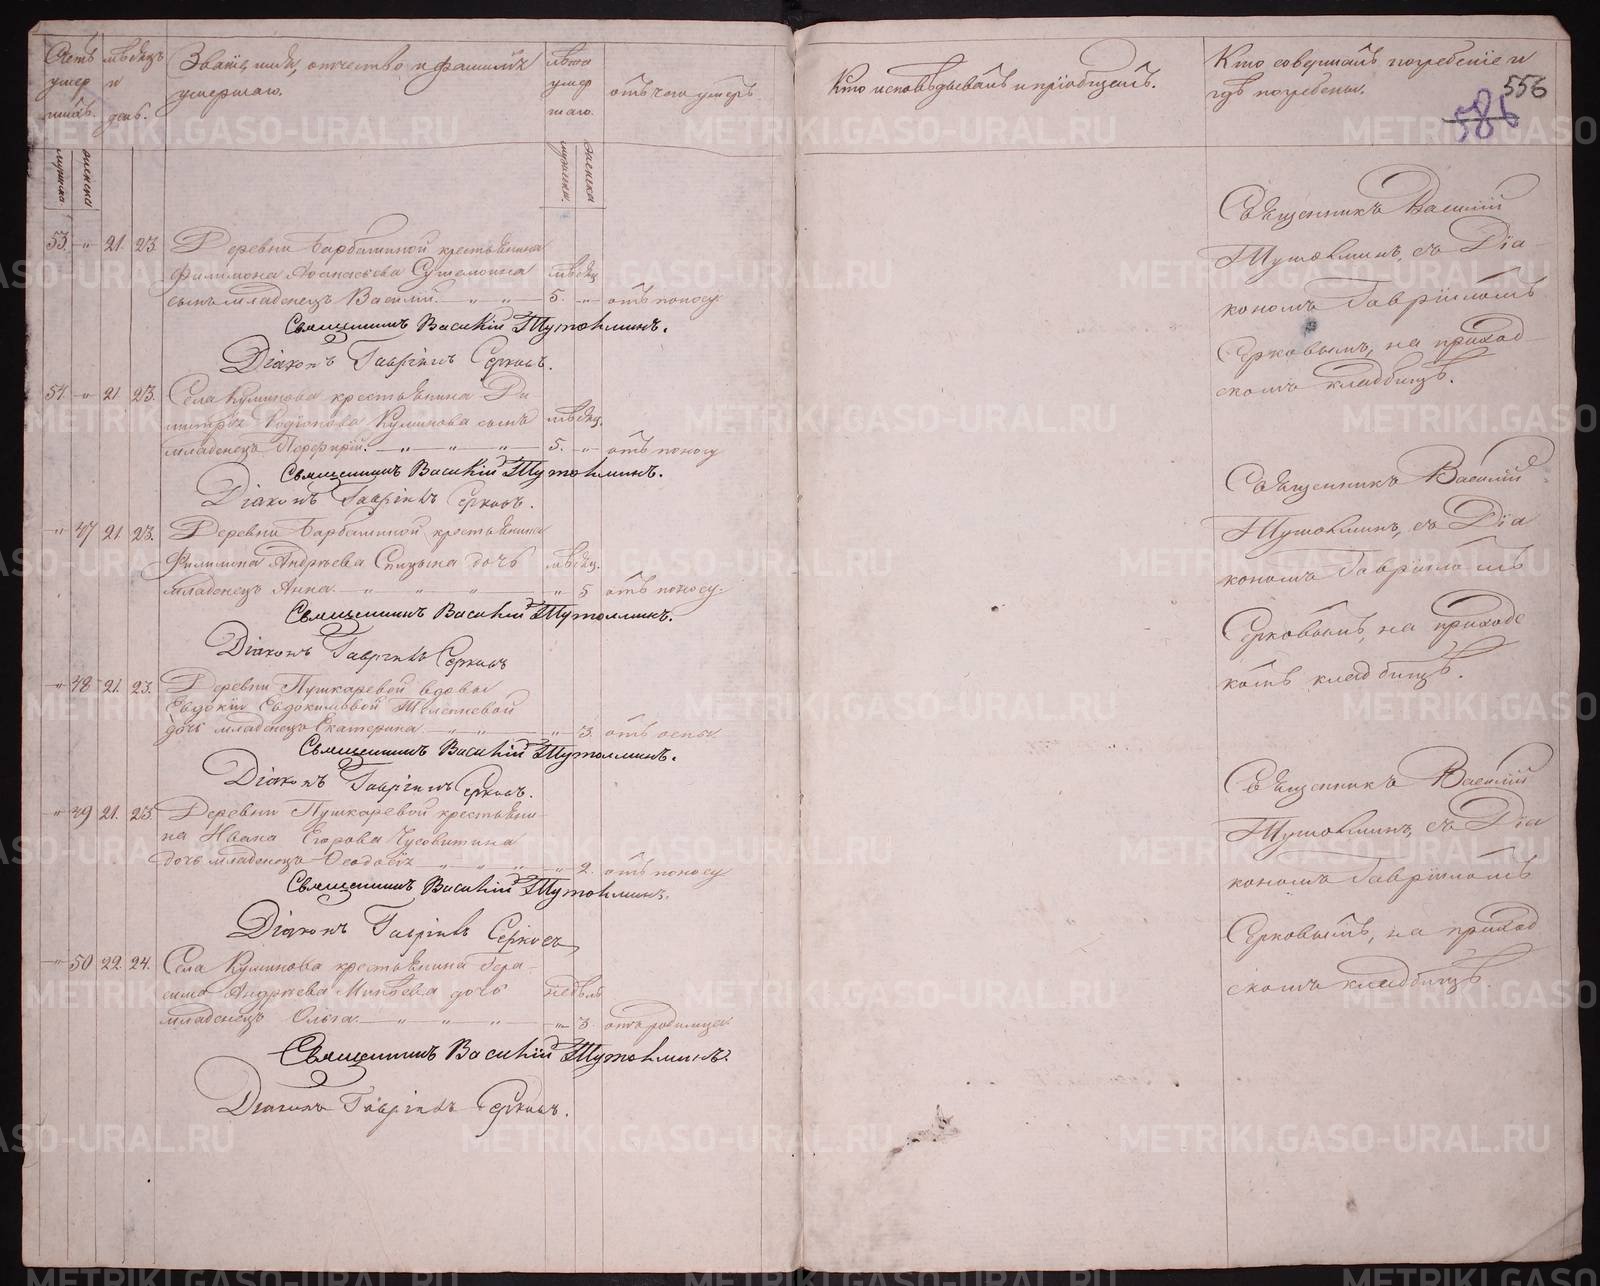 Счетъ умер шихъ.
мѣсяцъ и день.
Званіе, имя, отчество и фамилія умершаго.
лѣта умер шаго.
отъ чего умеръ
Кто исповѣдывалъ и пріобщалъ.
Кто совершалъ погребеніе и гдѣ погребены.
556
586
мужеска. женска
мужеска. женска
53. " 21. 23. Деревни Барбашиной крестьянина
Филимона Аѳанасьева мѣсяц.
сынъ младенецъ Василій. " " 5. " отъ поносу
Священникъ Василій Тутолминъ.
Діаконъ Гавріилъ Серковъ.
54. " 21 23. Села Куминова крестьянина Ди
митрія Родіонова Куминова сынъ мѣсяц.
младенецъ Порфирій. " " " 5. " отъ поносу
Священникъ Василій Тутолминъ.
Діаконъ Гавріилъ Серковъ.
" 47 21. 23. Деревни Барбашиной крестьянина
Филиппа Андреева Спицына дочь мѣсяц.
младенецъ Анна. " " " " 5 отъ поносу.
Священникъ Василій Тутолминъ.
Діаконъ Гавріилъ Серковъ
" 48 21. 23. Деревни Пушкаревой вдовы
Евдокіи Евдокимовой
дочь младенецъ Екатерина. " " " 3. отъ оспы.
Священникъ Василій Тутолминъ.
Діаконъ Гавріилъ Серковъ.
" 49 21. 23. Деревни Пушкаревой крестьяни
на Ивана Егорова Чусовитина
дочь младенецъ Ѳеодосія " " " " 2. отъ поносу
Священникъ Василій Тутолминъ.
Діаконъ Гавріилъ Серковъ
" 50 22. 24. Села Куминова крестьянина Гера
сима Андреева дочь недѣль
младенецъ Ольга. " " " " 3. отъ родимца.
Священникъ Василій Тутолминъ.
Діаконъ Гавріилъ Серковъ.
Священникъ Василій
Тутолминъ, съ Діа
кономъ Гавріиломъ
Серковымъ, на приход
скомъ кладбищѣ.
Священникъ Василій
Тутолминъ, съ Діа
кономъ Гавріиломъ
Серковымъ, на приходс
комъ кладбищѣ.
Священникъ Василій
Тутолминъ, съ Діа
кономъ Гавріиломъ
Серковымъ, на приход
скомъ кладбищѣ.
METRIKI.GASO-URAL.RU